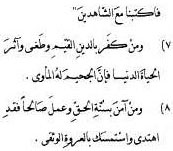 فاكتبنا مع الشاهدين"
٧) ومن كفر بالدين القيّم وطغى وآثر
الحياة الدنيا فإنّ الجحيم له المأوى .
٨) ومن آمن بسنّة الحقّ وعمل صالحاً فقد
اهتدى واستمسك بالعروة الوثقى .